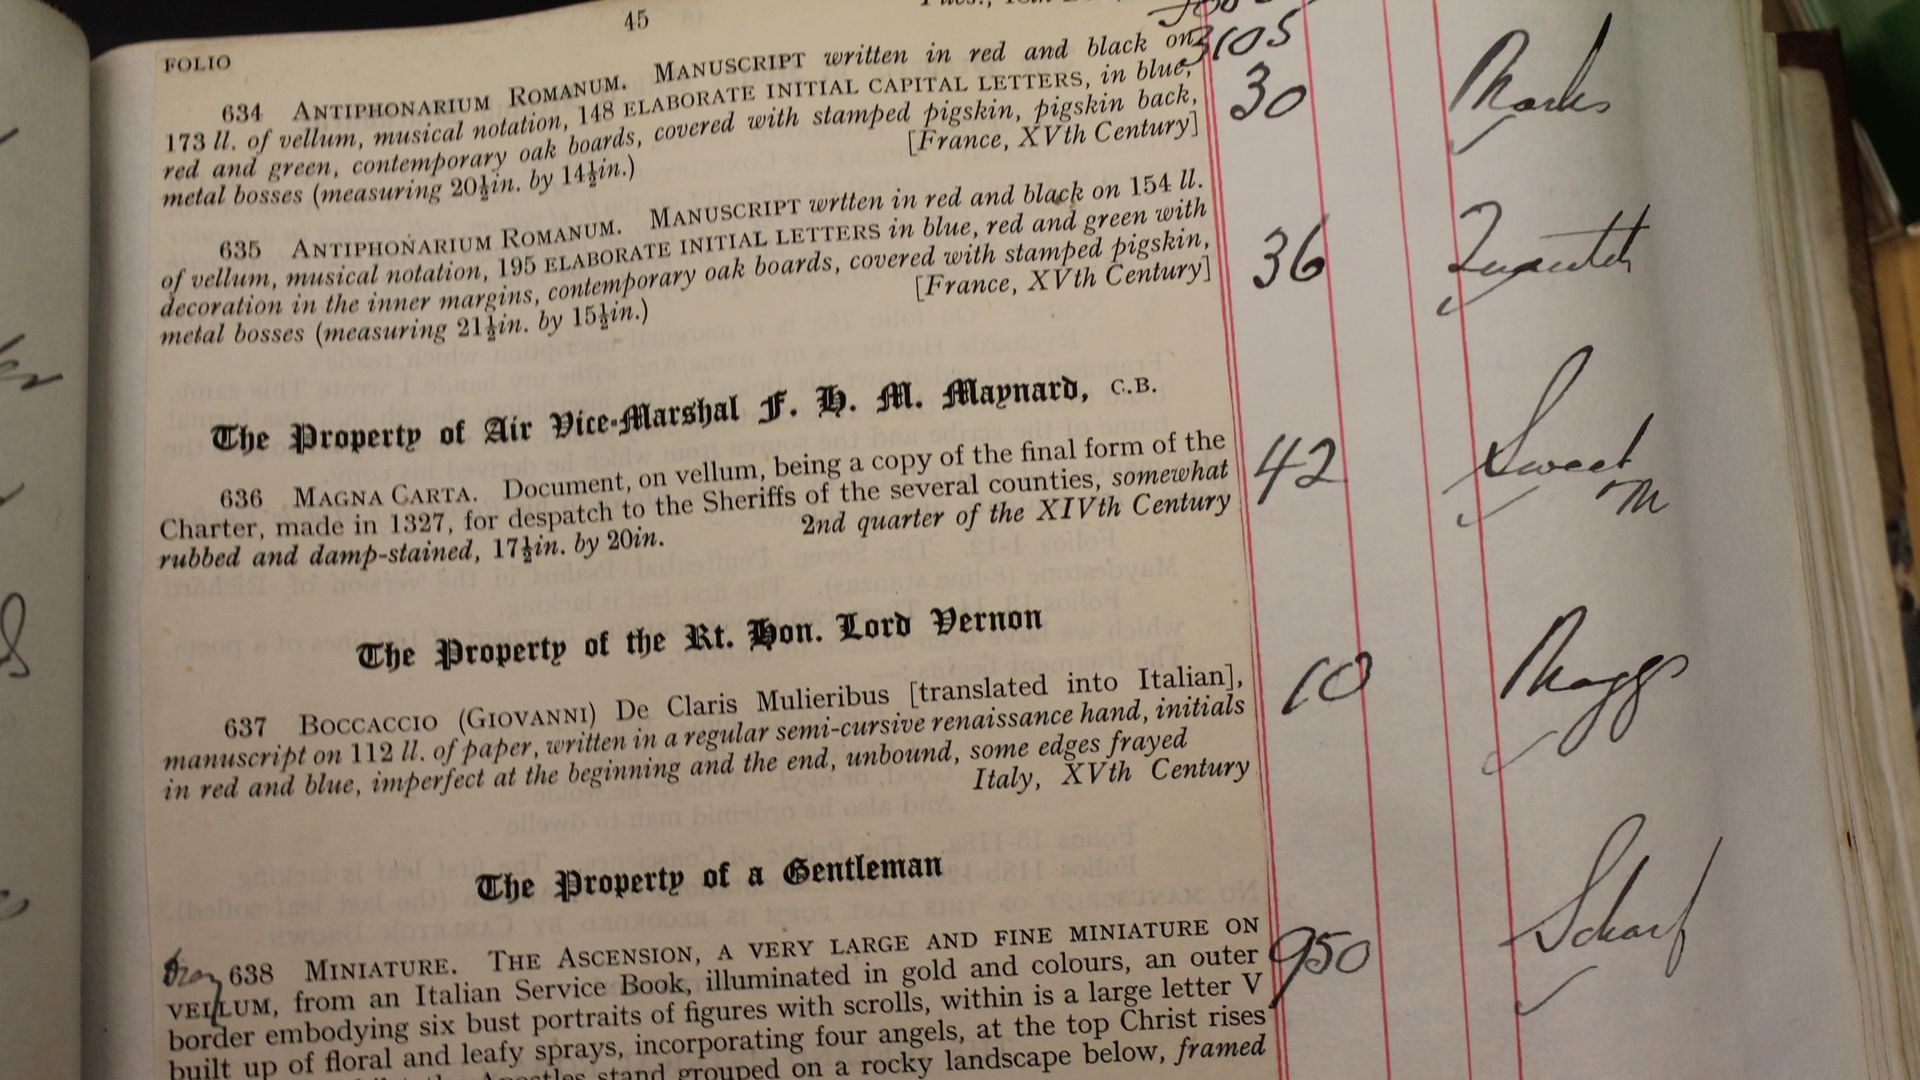 45
FOLIO
3105
634 ANTIPHONARIUM ROMANUM. MANUSCRIPT written in red and black on
173 ll. of vellum, musical notation, 148 ELABORATE INITIAL CAPITAL LETTERS, in blue,
red and green, contemporary oak boards, covered with stamped pigskin, pigskin back,
metal bosses (measuring 20½in. by 14½in.) [France, XVth Century]
30 Marks
635 ANTIPHONARIUM ROMANUM. MANUSCRIPT wrtten in red and black on 154 ll.
of vellum, musical notation, 195 ELABORATE INITIAL LETTERS in blue, red and green with
decoration in the inner margins, contemporary oak boards, covered with stamped pigskin,
metal bosses (measuring 21½in. by 15½in.) [France, XVth Century]
36
The Property of Air Vice-Marshal F. H. M. Maynard, C.B.
636 MAGNA CARTA. Document, on vellum, being a copy of the final form of the
Charter, made in 1327, for despatch to the Sheriffs of the several counties, somewhat
rubbed and damp-stained, 17½in. by 20in. 2nd quarter of the XIVth Century
42 Sweet
M
The Property of the Rt. Hon. Lord Vernon
637 BOCCACCIO (GIOVANNI) De Claris Mulieribus [translated into Italian],
manuscript on 112 ll. of paper, written in a regular semi-cursive renaissance hand, initials
in red and blue, imperfect at the beginning and the end, unbound, some edges frayed
Italy, XVth Century
10 Maggs
The Property of a Gentleman
638 MINIATURE. THE ASCENSION, A VERY LARGE AND FINE MINIATURE ON
VELLUM, from an Italian Service Book, illuminated in gold and colours, an outer
border embodying six bust portraits of figures with scrolls, within is a large letter V
built up of floral and leafy sprays, incorporating four angels, at the top Christ rises
Apostles stand grouped on a rocky landscape below, framed
950 Scharf